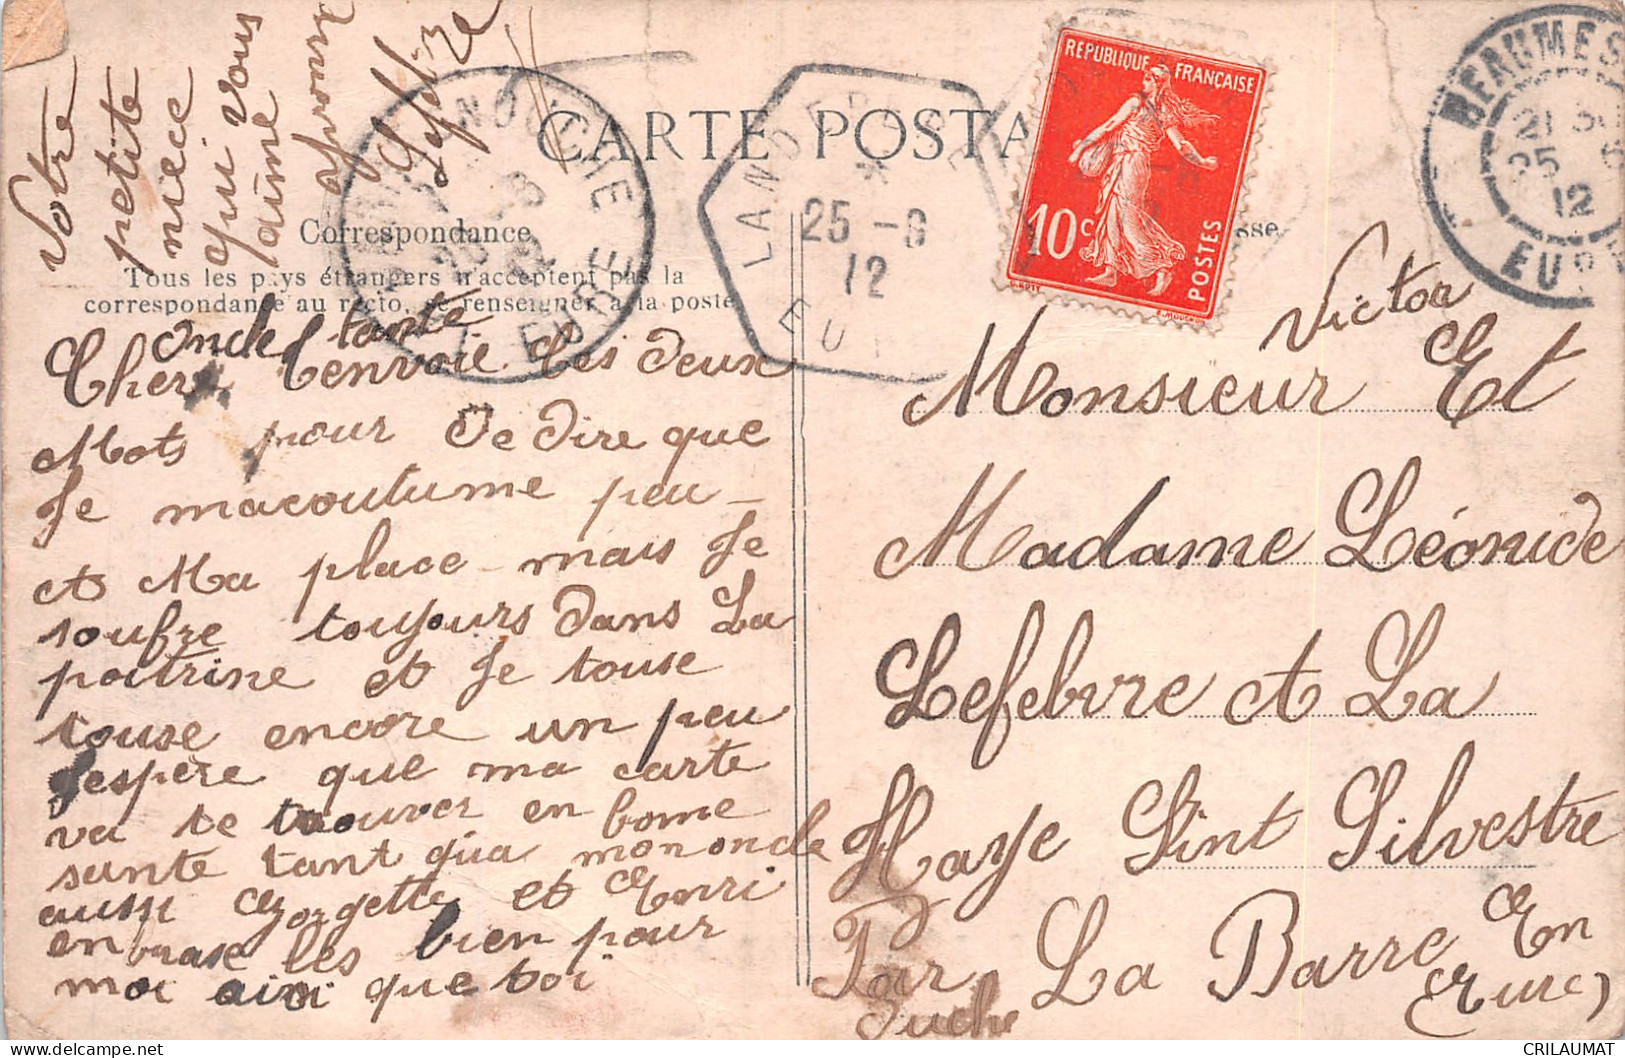 Votre
petite
niece
qui vous
aime
CARTE POSTA
Correspondance
Tous les pays étrangers n'acceptent pas la
correspondance au recto, se renseigner à la poste
oncle tante
Cher Tenvoie Ces deux
Mots pour Te dire que
Je macoutume peu
et Ma place mais Je
soufre toujours dans La
poitrine et Je touse
touse encore un peu
Jespere que ma carte
va te trouver en bonne
sante tant qua mon oncle
aussi Gorgette et Enri
enbrase les bien pour
moi ainsi que toi
REPUBLIQUE FRANÇAISE
10c
POSTES
LANDEPE
25 -8
12
EU
NOUCHE
EU
BEAUMES
21 30
25
12
EURE
sse
Victor
Monsieur Et
Madame Léonide
Lefebvre et La
Haye Sint Silvestre
Par La Barre En
Ouche
(Eure)
CRILAUMAT